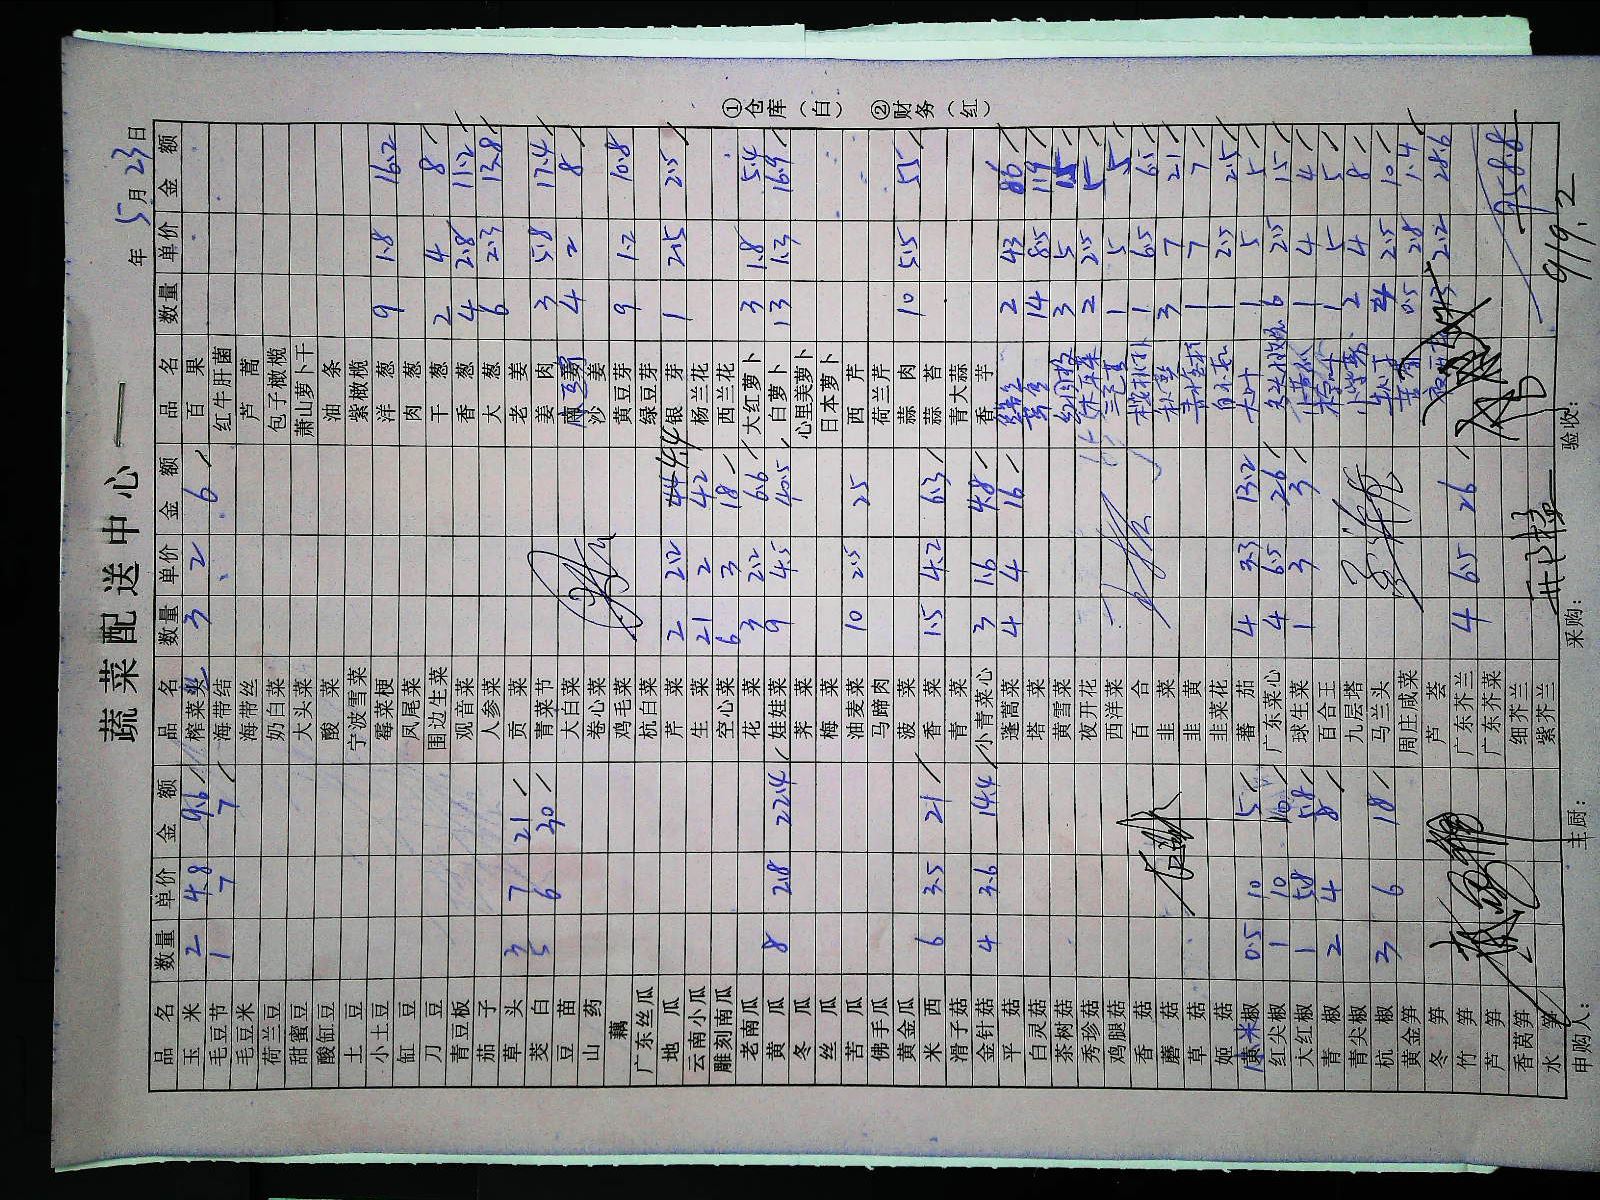 蔬菜配送中心
年 5月 23日
品名 数量 单价 金额 品名 数量 单价 金额 品名 数量 单价 金额
玉米 2 4.8 9.6 榨菜 3 2 6 百果
毛豆节 1 7 7 海带结 红牛肝菌
毛豆米 海带丝 芦蒿
荷兰豆 奶白菜 包子橄榄
甜蜜豆 大头菜 萧山萝卜干
酸缸豆 酸菜 油条
土豆 宁波雪菜 紫橄榄
小土豆 霉菜梗 洋葱 9 1.8 16.2
缸豆 凤尾菜 肉葱
刀豆 围边生菜 干葱 2 4 8
青豆板 观音菜 香葱 4 2.8 11.2
茄子 人参菜 大葱 6 2.3 13.8
草头 3 7 21 贡菜 老姜
茭白 5 6 30 青菜节 姜肉 3 5.8 17.4
豆苗 大白菜 4 2 8
山药 卷心菜 沙姜
藕 鸡毛菜 黄豆芽 9 1.2 10.8
广东丝瓜 杭白菜 绿豆芽
地瓜 芹菜 2 2.2 4.4 银芽 1 2.5 2.5
云南小瓜 生菜 21 2 42 杨兰花
雕刻南瓜 空心菜 6 3 18 西兰花
老南瓜 花菜 3 2.2 6.6 大红萝卜 3 1.8 5.4
黄瓜 8 2.8 22.4 娃娃菜 9 4.5 40.5 白萝卜 13 1.3 16.9
冬瓜 荠菜 心里美萝卜
丝瓜 梅菜 日本萝卜
苦瓜 油麦菜 10 2.5 25 西芹
佛手瓜 马蹄肉 荷兰芹
黄金瓜 菠菜 蒜肉 10 5.5 55
米西 6 3.5 21 香菜 1.5 4.2 6.3 蒜苔
滑子菇 青菜 青大蒜
金针菇 4 3.6 14.4 小青菜心 3 1.6 4.8 香芋
平菇 蓬蒿菜 4 4 16 2 43 86
白灵菇 塔菜 14 8.5 119
茶树菇 黄雪菜 3 5 15
秀珍菇 夜开花 2 2.5 5
鸡腿菇 西洋菜 1 5 5
香菇 百合 1 6.5 6.5
蘑菇 韭菜 3 7 21
草菇 韭黄 1 7 7
姬菇 韭菜花 1 2.5 2.5
米椒 0.5 10 5 蕃茄 4 3.3 13.2 大叶 1 5 5
红尖椒 1 10 10 广东菜心 4 6.5 26 6 2.5 15
大红椒 1 5.8 5.8 球生菜 1 3 3 1 4 4
青椒 2 4 8 百合王 1 5 5
青尖椒 九层塔 2 4 8
杭椒 3 6 18 马兰头 4 2.5 10
黄金笋 周庄咸菜 0.5 2.8 1.4
冬笋 芦荟 13 2.2 28.6
竹笋 广东芥兰 4 6.5 26
芦笋 广东芥菜
香莴笋 细芥兰 958.8
水笋 紫芥兰
申购人： 主厨： 采购： 验收： 919.2
①仓库（白） ②财务（红）